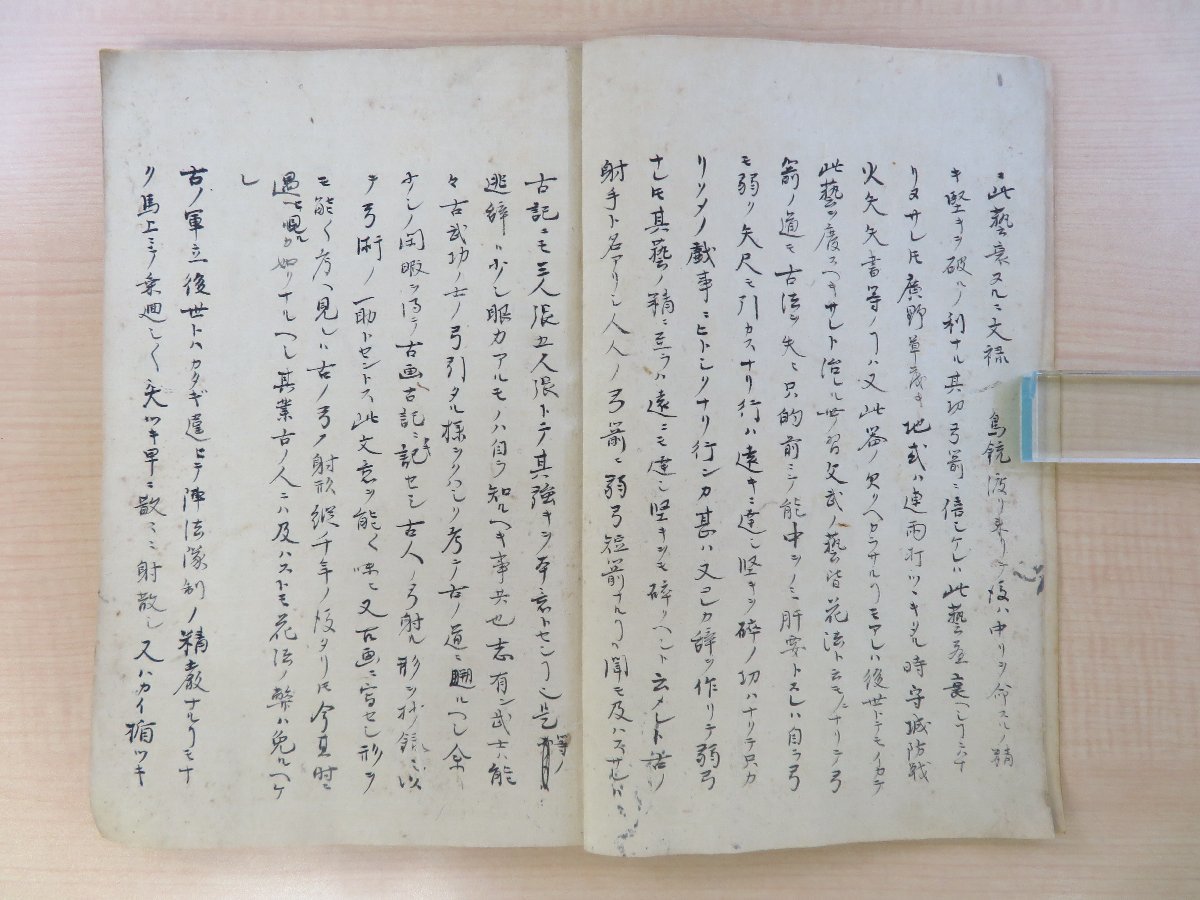 ニ此藝衰ヌルニ文禄 鳥銃渡リ来リシ後ハ中リヲ命スルノ精
キ堅キヲ破ルノ利ナル其功弓箭ニ倍シケレハ此藝益衰ヘ
リヌサレ𪜈廣野草茂キ地或ハ連雨打ツヽキタル時守城防戦
火矢矢書等ノヿハ又此器ノ欠クヘカラサルヿモアレハ後世トテモイカテ
此藝ヲ廢スヘキサレト治レル世ノ習文武ノ藝皆花法ト云モノニナリテ弓
箭ノ道モ古法ヲ失ヒ只的前ニテ能中ツルノミ肝要トスレハ自ラ弓
モ弱ク矢尺モ引カスナリ行ハ遠キニ達シ堅キヲ碎ノ功ハナリテ只カ
リソメノ戯事ニヒトシクナリ行ンカ甚ハ又己カ辞ヲ作リテ弱弓
ナレ𪜈其藝ノ精ニ至ラハ遠ニモ達シ堅キヲモ碎リヘシト云メレト昔ヨリ
射手ト名アリシ人人ノ弓箭ニ弱弓短箭ナルヿヲ聞モ及ハスサレハ
古記ニモ三人張五人張トテ其強キヲ本意トセシヿ也是等ノ
逃辞ハ少シ眼力アルモノハ自ラ知ルヘキ事共也志有ン武士ハ能
々古武功ノ士ノ弓引タル様ヲハシリ考テ古ノ道ニ遡ルヘシ余
少シノ閑暇ヲ得テ古画古記ニ記セシ古人ノ弓射ル形ヲ抄録シ以
テ弓術ノ一助トセントス此文意ヲ能ク味ヒ又古画ニ写セシ形ヲ
モ能ク考ヘ見レハ古ノ弓ノ射形縦千年ノ後タリ𪜈今其時ニ
遇モ見ルカ如クナルヘシ其業古ノ人ニハ及ハストモ花法ノ弊ハ免ルヘケ
レ
古ノ軍立後世トハカタギ違ヒテ陣法隊制ノ精嚴ナルヿモナ
ク馬上ニテ乗廻シ〱矢ツキ早ニ散々ニ射散シ又ハカイ楯ツキ